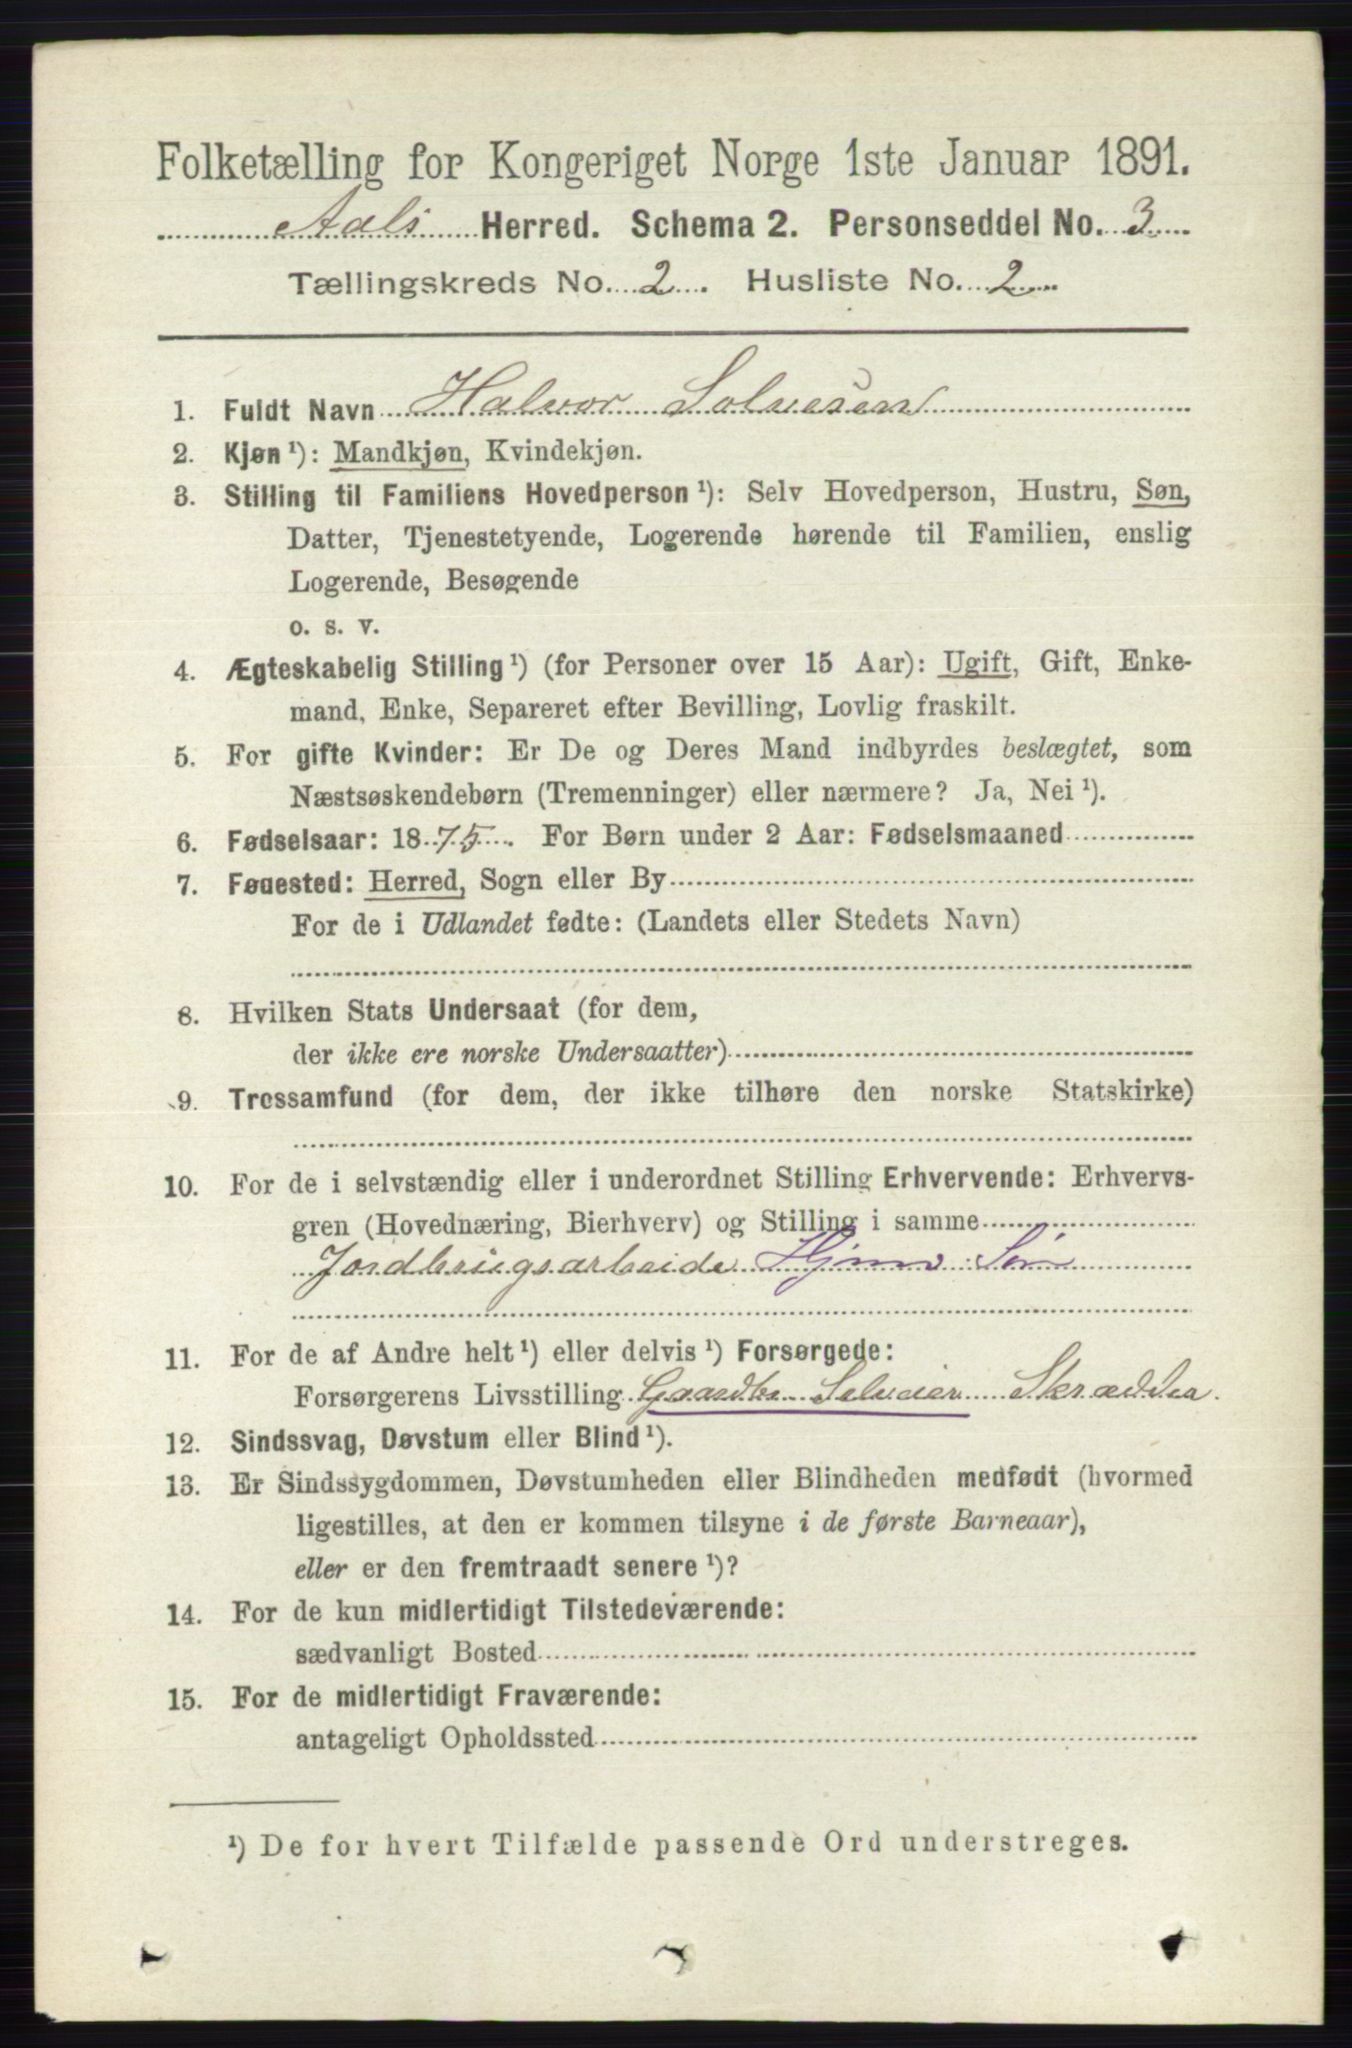 Folketælling for Kongeriget Norge 1ste Januar 1891.
Aals Herred. Schema 2. Personseddel No. 3
Tællingskreds No. 2. Husliste No. 2
1. Fuldt Navn Halvor Solvesen
2. Kjøn ¹): Mandkjøn, Kvindekjøn.
3. Stilling til Familiens Hovedperson ¹): Selv Hovedperson, Hustru, Søn,
Datter, Tjenestetyende, Logerende hørende til Familien, enslig
Logerende, Besøgende
o. s. v.
4. Ægteskabelig Stilling ¹) (for Personer over 15 Aar): Ugift, Gift, Enke-
mand, Enke, Separeret efter Bevilling, Lovlig fraskilt.
5. For gifte Kvinder: Er De og Deres Mand indbyrdes beslægtet, som
Næstsøskendebørn (Tremenninger) eller nærmere? Ja, Nei ¹).
6. Fødselsaar: 1875. For Børn under 2 Aar: Fødselsmaaned
7. Fødested: Herred, Sogn eller By
For de i Udlandet fødte: (Landets eller Stedets Navn)
8. Hvilken Stats Undersaat (for dem,
der ikke ere norske Undersaatter)
9. Trossamfund (for dem, der ikke tilhøre den norske Statskirke)
10. For de i selvstændig eller i underordnet Stilling Erhvervende: Erhvervs-
gren (Hovednæring, Bierhverv) og Stilling i samme
Jordbrugsarbeide Hjmv Søn
11. For de af Andre helt ¹) eller delvis ¹) Forsørgede:
Forsørgerens Livsstilling Gaardbr Selveier Skrædder
12. Sindssvag, Døvstum eller Blind ¹).
13. Er Sindssygdommen, Døvstumheden eller Blindheden medfødt (hvormed
ligestilles, at den er kommen tilsyne i de første Barneaar),
eller er den fremtraadt senere ¹)?
14. For de kun midlertidigt Tilstedeværende:
sædvanligt Bosted
15. For de midlertidigt Fraværende:
antageligt Opholdssted
¹) De for hvert Tilfælde passende Ord understreges.